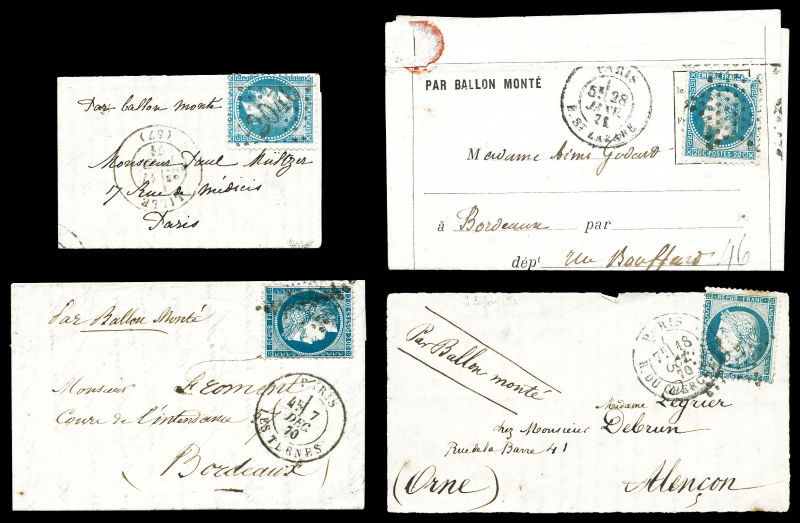 Par ballon monté
LILLE
(57)
Monsieur Paul Multzer
17 Rue de Médicis
Paris
PAR BALLON MONTÉ
PARIS
5E 28
JANV.
71
R. ST LAZARE
EMPIRE FRANC
20C POSTES 20C
Madame Aimé Godard
à Bordeaux par
dépt rue Bouffard 46
Par Ballon Monté
REPUB FRANC
Monsieur Fromont
Cours de l'intendance
Bordeaux
PARIS
7
DEC
70
LES TERNES
Par Ballon monté
PARIS
18
70
REPUB FRANC
Madame Legrier
chez Monsieur Debrun
Rue de la Barre 41
(Orne) Alençon